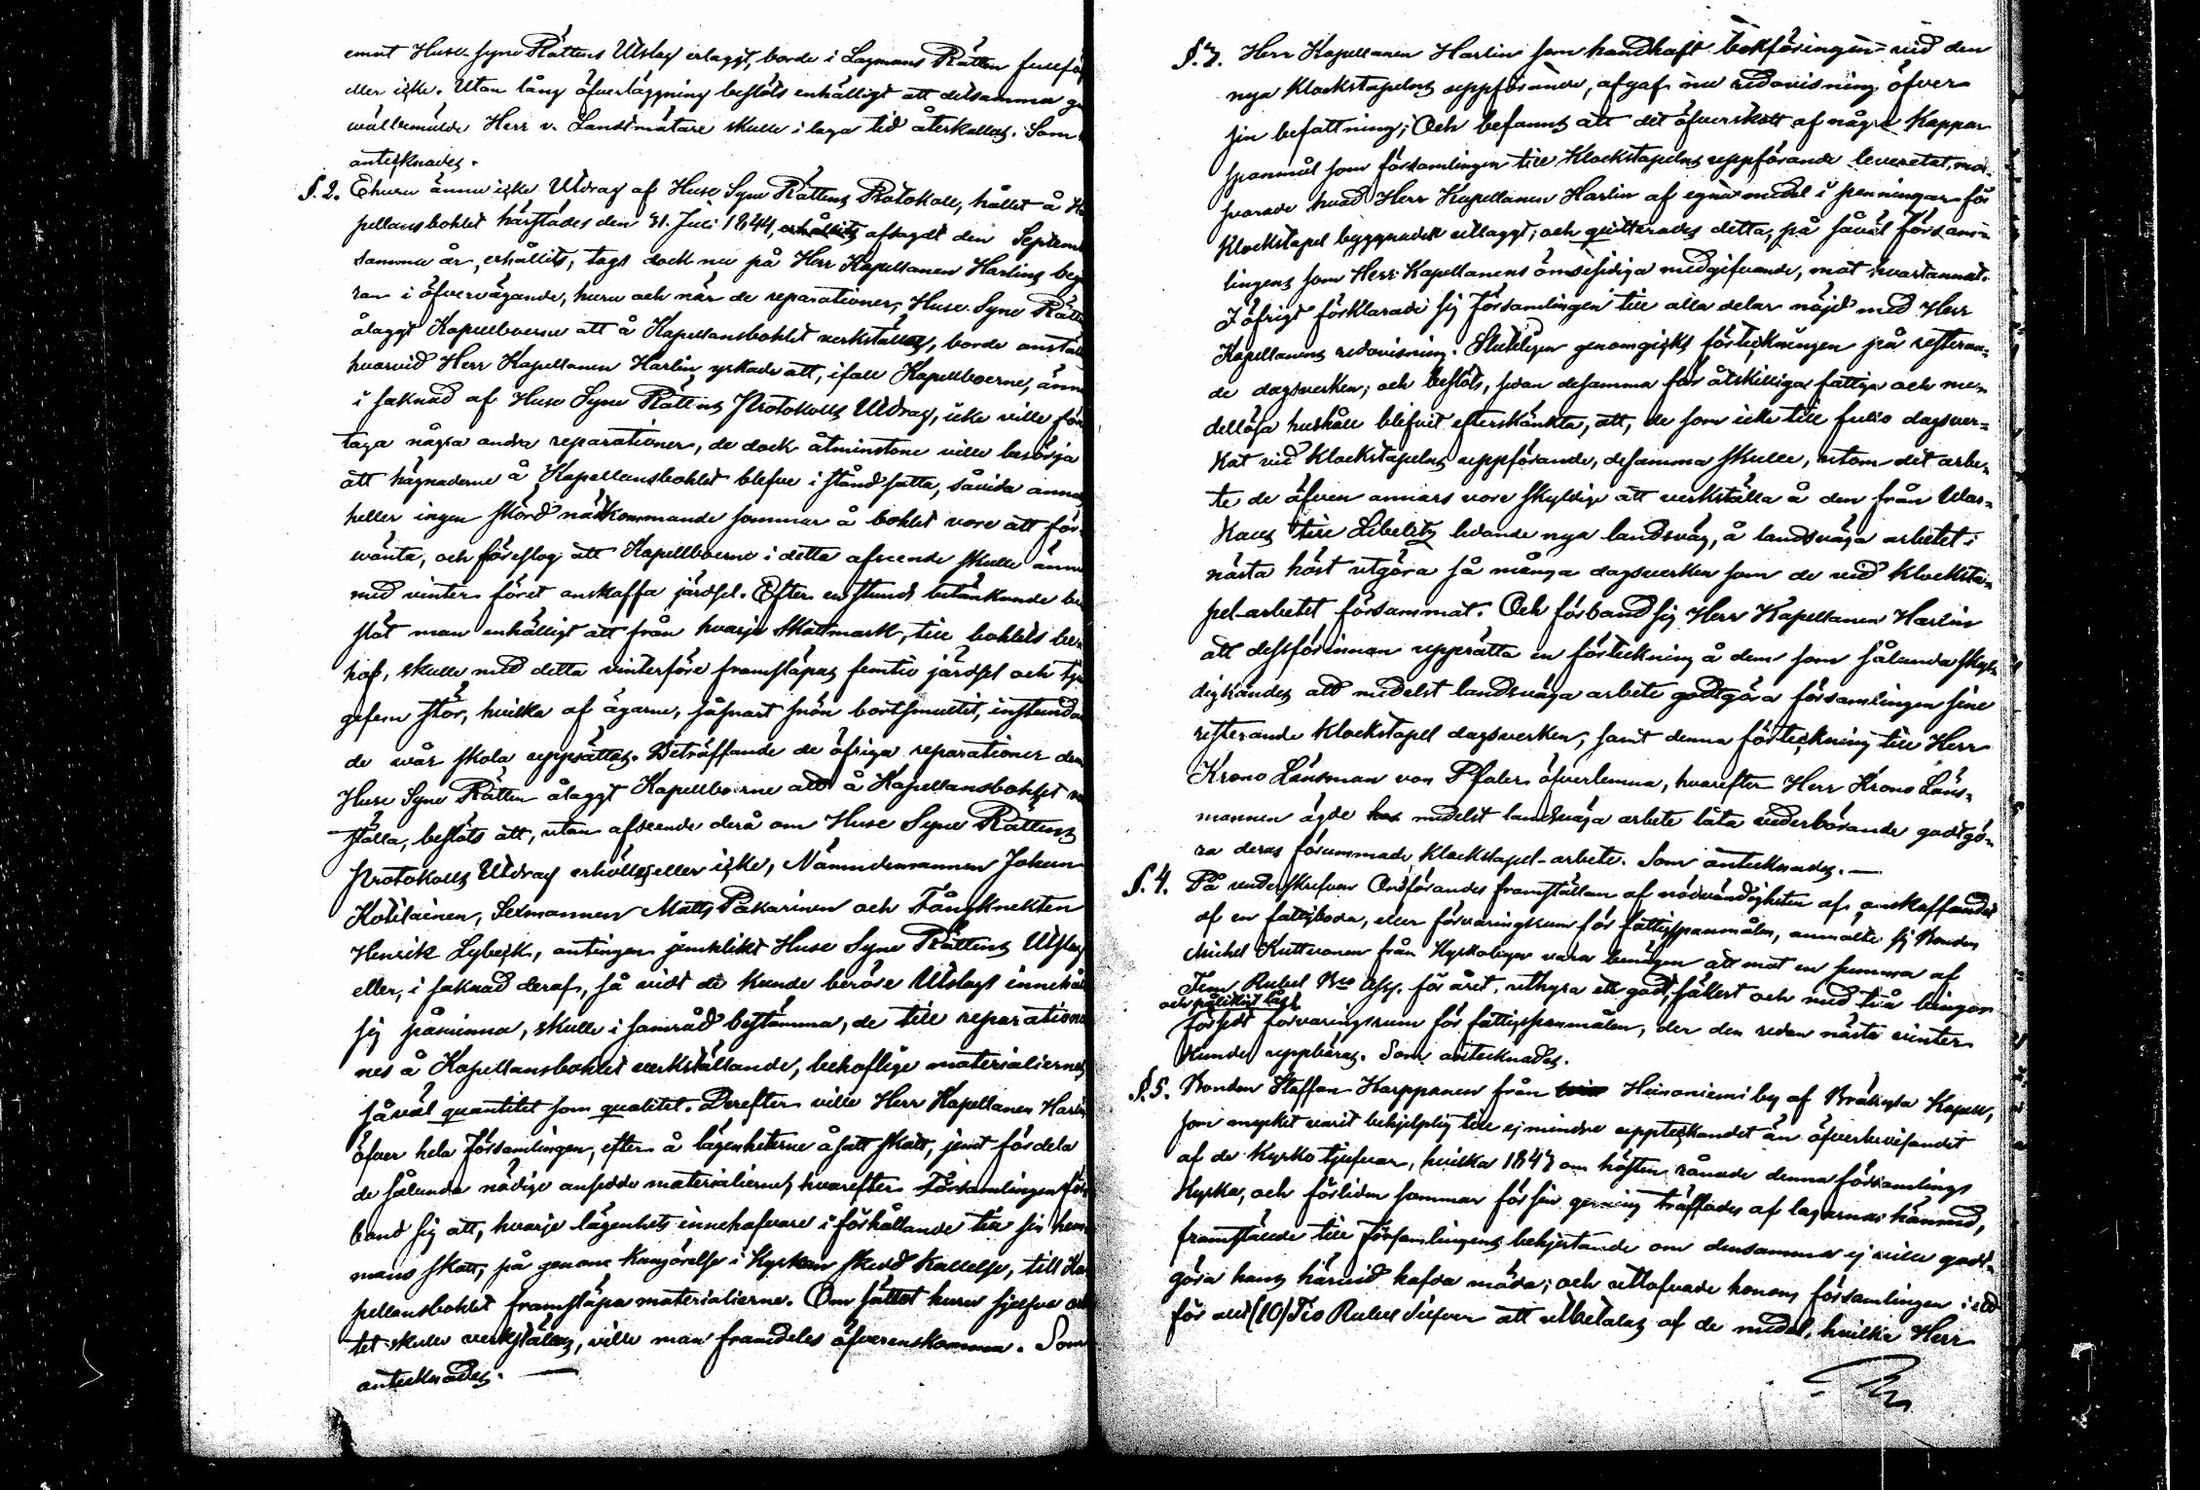 emot Huse-Syne Rättens Utslag erlaggt, borde i Lagmans Rätten fullfö
eller icke. Utan lång öfverläggning beslöts enhälligt att detsamma g
wälbemälde Herr v. Landtmätare skulle i laga tid återkallas. Som
antecknades.
§. 2. Ehuru ännu icke Utdrag af Huse Syne Rättens Protokoll, hållet å Ka
pellansbohlet härstädes den 31. Juli 1844, erhållits afsagdt den Septemb
samma år, erhållits, togs dock nu på Herr Kapellanen Harlins beg
ran i öfvervägande, huru och när de reparationer, Huse Syne Rätte
ålaggt Kapellboerne att å Kapellansbohlet verkställas, borde anstäl
hvarvid Herr Kapellanen Harlin yrkade att, ifall Kapellboerne, änn
i saknad af Huse Syne Rättens Protokolls Utdrag, icke ville före
taga några andra reparationer, de dock åtminstone ville besörja
att hägnaderne å Kapellansbohlet blefve i stånd satta, såvida anna
heller ingen skörd nästkommande sommar å bohlet vore att för
wänta, och föreslog att Kapellboerne i detta afseende skulle ännu
med vinterföret anskaffa järdsel. Efter en stunds betänkande be
slöt man enhälligt att från hvarje Skattmark, till bohlets be-
hof, skulle med detta vinterföre framsläpas femtio järdsel och tju
gefem stör, hvilka af ägarne, såsnart snön bortsmultit, instundan
de vår skola uppsättas. Beträffande de öfriga reparationer dem
Huse Syne Rätten ålaggt Kapellboerne att å Kapellansbohlet ve
ställa, beslöts att, utan afseende derå om Huse Syne Rättens
Protokolls Utdrag erhölles eller icke, Nämndemannen Johan
Kotilainen, Sexmannen Matts Pakarinen och Fångknekten
Henrik Lybeck, antingen jemklikt Huse Syne Rättens Utslag
eller, i saknad deraf, så vidt de kunde beröre Utslags innehå
sig påminna, skulle i samråd bestämma, de till reparatione
nes å Kapellansbohlet verkställande, behöflige materialiernes
såväl quantitet som qualitet. Derefter ville Herr Kapellanen Harlin
öfver hela Församlingen, efter å lägenheterne åsatt skatt, jemt fördela
de sålunda nödige ansedde materialierne, hvarefter Församlingen för
band sig att, hvarje lägenhets innehafvare i förhållande till sin hem
mans skatt, på genom kungörelse i Kyrkan skedd kallelse, till Ka
pellansbohlet framsläpa materialierne. Om sättet huru sjelfva ar
tet skulle verkställas, ville man framdeles öfverenskomma. Som
antecknades. —
§. 3. Herr Kapellanen Harlin som handhaft bokföringen vid den
nya klockstapelns uppförande, afgaf nu redovisning öfver
sin befattning; Och befanns att det öfverskott af några Kappar
spanmål som församlingen till Klockstapelns uppförande levererat, mot-
svarade hvad Herr Kapellanen Harlin af egna medel i penningar för
Klockstapel byggnaden utlaggt; och quitterades detta, på såväl försam-
lingens som Herr Kapellanens ömsesidiga medgifvande, mot hvartannat.
I öfrigt förklarade sig Församlingen till alla delar nöjd med Herr
Kapellanens redovisning. Slutligen genomgicks förteckningen på resteran-
de dagsverken; och beslöts, sedan desamma för åtskilliga fattiga och me-
dellösa hushåll blifvit efterskänkta, att, de som icke till fullo dagsver-
kat vid Klockstapelns uppförande, desamma skulle, utom det arbe-
te de äfven annars vore skyldige att verkställa å den från War-
kaus till Libelits ledande nya landsväg, å landsväga arbetet i
nästa höst utgöra så många dagsverken som de vid klocksta-
pel-arbetet försummat. Och förband sig Herr Kapellanen Harlin
att dessförinnan upprätta en förteckning å dem som sålunda skyl-
digkändes att medelst landsväga arbete godtgöra församlingen sine
resterande klockstapel dagsverken, samt denna förteckning till Herr
Krono Länsman von Pfaler öfverlemna, hvarefter Herr Krono Läns-
mannen ägde medelst landsväga arbete låta vederbörande godtgö-
ra deras försummade klockstapel-arbete. Som antecknades. —
§. 4. På undertskrefven Ordförandes framställan af nödvändigheten af anskaffandet
af en fattigboda, eller förvaringsrum för fattigspanmålen, anmälte sig Bonden
Michel Kutteronen från Kyrkobyn vara benägen att mot en summa af
Fem Rubel Bco Ass. för året, uthyra ett godt, säkert och med två bingar
och pålitligt lås
försedt förvaringsrum för fattigspanmålen, der den redan nästa vinter
kunde uppbäras. Som antecknades.
§. 5. Bonden Staffan Karppanen från Heinoniemi by af Bräkylä Kapell,
som mycket varit behjelplig till ej mindre upptäckandet än öfverbevisandet
af de Kyrkotjufvar, hvilka 1847 om hösten rånade denna församlings
Kyrka, och förliden sommar för sin gerning träffades af lagarnas hämnd,
framställde till Församlingens behjertande om densamma ej ville godt-
göra hans härvid hafda möda; och utlofvade honom församlingen i ett
för allt (10) Tio Rubel Silfver att utbetalas af de medel, hvilka Herr